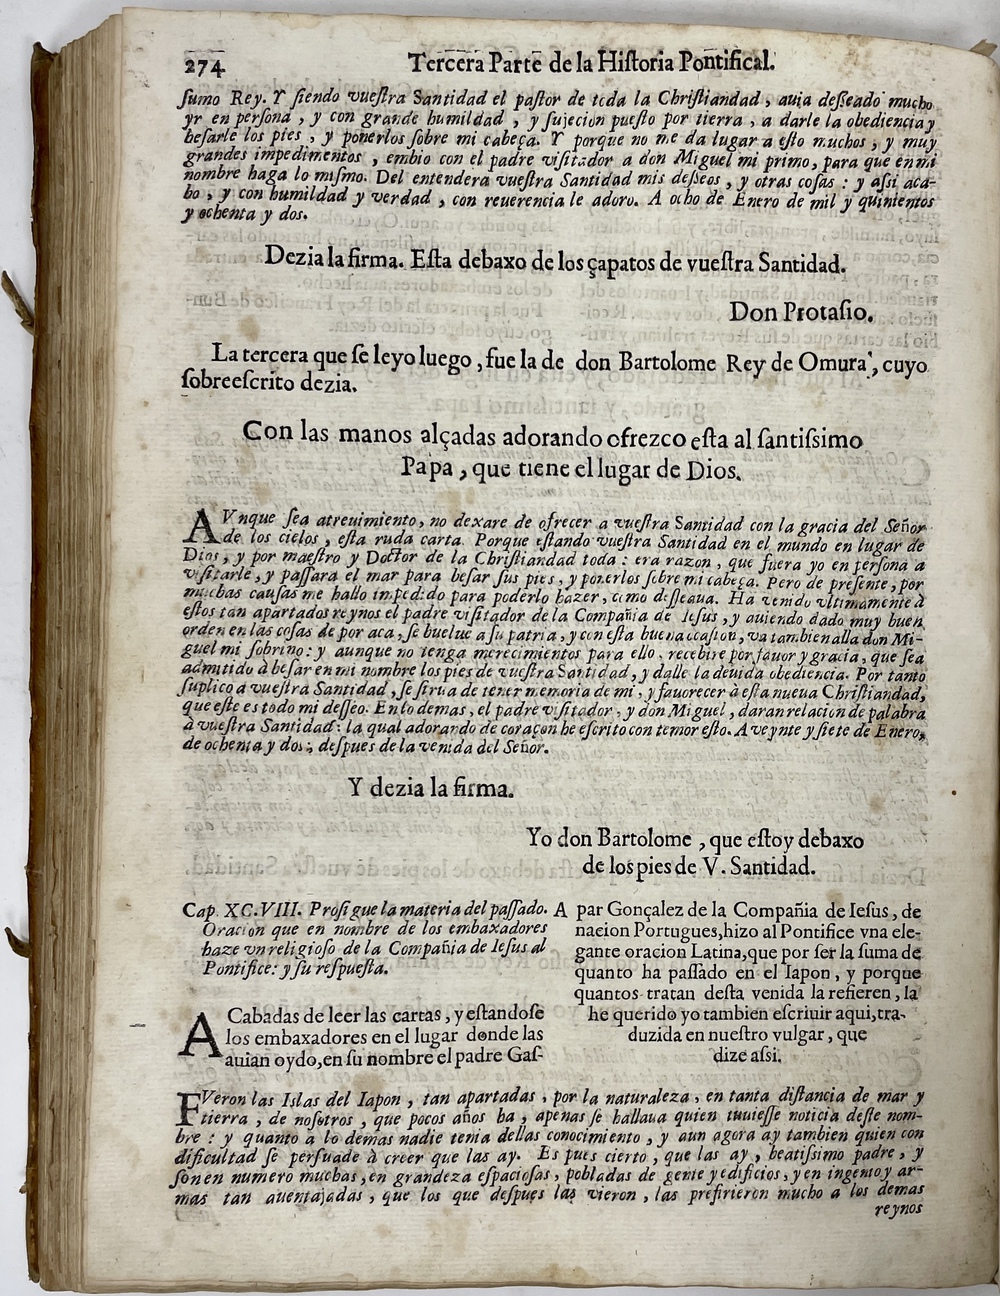 274
Tercera Parte de la Hiſtoria Pontifical.
ſumo Rey. Y ſiendo vueſtra Santidad el paſtor de toda la Chriſtiandad, auia deſſeado mucho
yr en perſona, y con grande humildad, y ſujecion pueſto por tierra, a darle la obediencia y
beſarle los pies, y ponerlos ſobre mi cabeça. Y porque no me da lugar a eſto muchos, y muy
grandes impedimentos, embio con el padre viſitador a don Miguel mi primo, para que en mi
nombre haga lo miſmo. Del entendera vueſtra Santidad mis deſſeos, y otras coſas: y aſsi aca-
bo, y con humildad y verdad, con reuerencia le adoro. A ocho de Enero de mil y quinientos
y ochenta y dos.
Dezia la firma. Eſta debaxo de los çapatos de vueſtra Santidad.
Don Protaſio.
La tercera que ſe leyo luego, fue la de don Bartolome Rey de Omura, cuyo
ſobreeſcrito dezia.
Con las manos alçadas adorando ofrezco eſta al ſantiſsimo
Papa, que tiene el lugar de Dios.
AVnque ſea atreuimiento, no dexare de ofrecer a vueſtra Santidad con la gracia del Señor
de los cielos, eſta ruda carta. Porque eſtando vueſtra Santidad en el mundo en lugar de
Dios, y por maeſtro y Doctor de la Chriſtiandad toda: era razon, que fuera yo en perſona a
viſitarle, y paſſara el mar para beſar ſus pies, y ponerlos ſobre mi cabeça. Pero de preſente, por
muchas cauſas me hallo impedido para poderlo hazer, como deſſeaua. Ha venido vltimamente à
eſtos tan apartados reynos el padre viſitador de la Compañia de Ieſus, y auiendo dado muy buen
orden en las coſas de por aca, ſe buelue a ſu patria, y con eſta buena ccaſion, va tambien alla don Mi-
guel mi ſobrino: y aunque no tenga merecimientos para ello, recebire por fauor y gracia, que ſea
admitido à beſar en mi nombre los pies de vueſtra Santidad, y dalle la deuida obediencia. Por tanto
ſuplico a vueſtra Santidad, ſe ſirua de tener memoria de mi, y fauorecer à eſta nueua Chriſtiandad,
que eſte es todo mi deſſeo. En lo demas, el padre viſitador, y don Miguel, daran relacion de palabra
à vueſtra Santidad: la qual adorando de coraçon he eſcrito con temor eſto. A veynte y ſiete de Enero,
de ochenta y dos, deſpues de la venida del Señor.
Y dezia la firma.
Yo don Bartolome, que eſtoy debaxo
de los pies de V. Santidad.
Cap. XC.VIII. Proſigue la materia del paſſado.
Oracion que en nombre de los embaxadores
haze vn religioſo de la Compañia de Ieſus al
Pontifice: y ſu reſpueſta.
ACabadas de leer las cartas, y eſtandoſe
los embaxadores en el lugar donde las
auian oydo, en ſu nombre el padre Gaſ-
par Gonçalez de la Compañia de Ieſus, de
nacion Portugues, hizo al Pontifice vna ele-
gante oracion Latina, que por ſer la ſuma de
quanto ha paſſado en el Iapon, y porque
quantos tratan deſta venida la refieren, la
he querido yo tambien eſcriuir aqui, tra-
duzida en nueſtro vulgar, que
dize aſsi.
FVeron las Islas del Iapon, tan apartadas, por la naturaleza, en tanta diſtancia de mar y
tierra, de noſotros, que pocos años ha, apenas ſe hallaua quien tuuieſſe noticia deſte nom-
bre: y quanto a lo demas nadie tenia dellas conocimiento, y aun agora ay tambien quien con
dificultad ſe perſuade à creer que las ay. Es pues cierto, que las ay, beatiſsimo padre, y
ſon en numero muchas, en grandeza eſpacioſas, pobladas de gente y edificios, y en ingenio y ar-
mas tan auentajadas, que los que deſpues las vieron, las prefirieron mucho a los demas
reynos